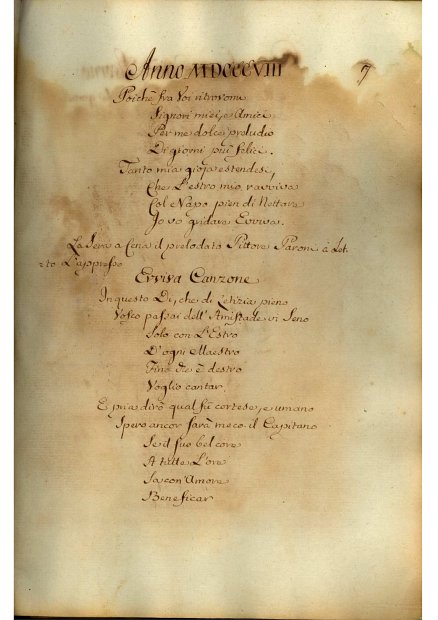 Anno MDCCCVIII 7
Poichè fra Voi ritrovomi
Signori miei, e Amici
Per me dolce è preludio
Di giorni più felici.
Tanto mia gioja estendesi,
Che L'estro mio ravviva
Col Napo pien di Nettare
Io vò gridare Evviva.
La Sera a Cena il prelodato Pittore Paroni à Let-
to L'appresso
Evviva Canzone
In questo Dì, che di Letizia pieno
Vosco passai dell'Amistade in Seno
Solo con L'Estro
D'ogni Maestro
Fino che è destro
Voglio cantar.
E pria dirò qual fù cortese, e umano
Spero ancor sarà meco il Capitano
Se il suo bel core
A tutte L'ore
Sa con Amore
Beneficar